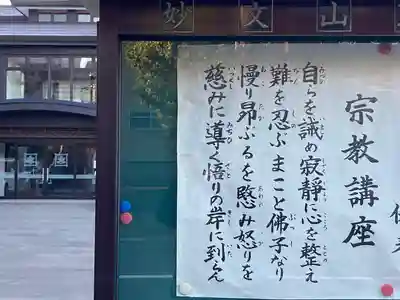 妙文山
宗教講座
自らを誡め寂靜に心を整え
難を忍ぶまこと佛子なり
慢り昂ぶるを愍み怒りを
慈みに導く悟りの岸に到らん